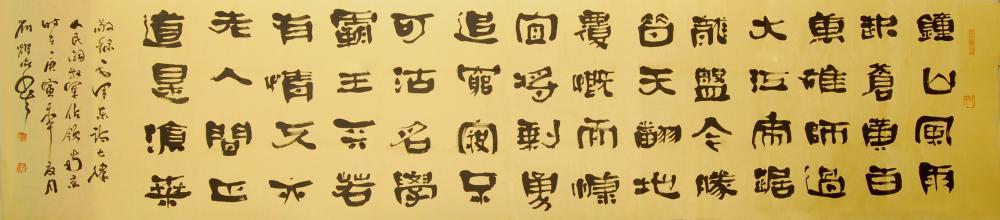 鐘山風雨
起蒼黄百
萬雄師過
大江虎踞
龍盤今勝
昔天翻地
覆慨而慷
宜將剩勇
追窮寇不
可沽名學
霸王天若
有情天亦
老人間正
道是滄桑
敬録毛澤東詩七律
人民解放軍佔領南京
時在庚寅年夏月